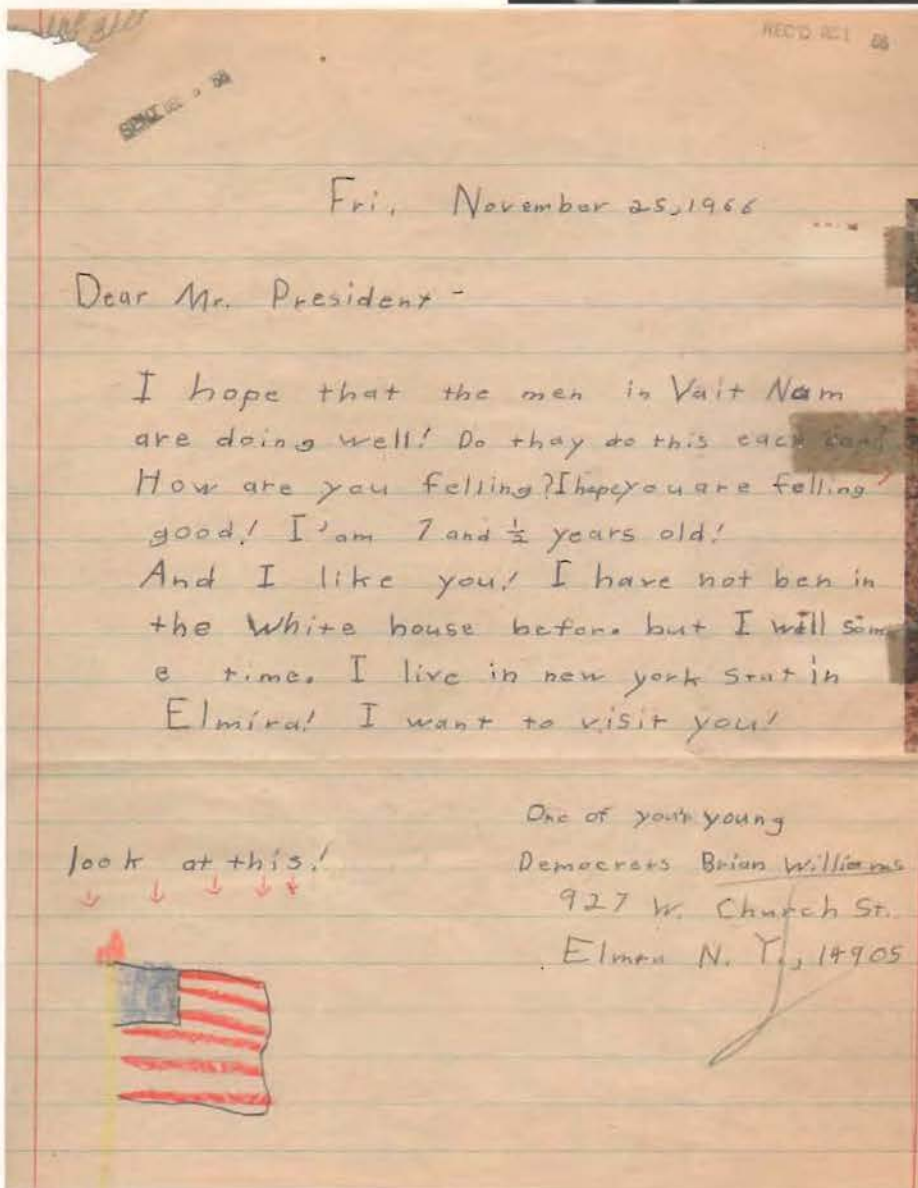 REC'D DEC 1 66
SENT DEC 66
Fri, November 25, 1966
Dear Mr. President -
I hope that the men in Vait Nam
are doing well! Do thay do this each
How are you felling? I hope you are felling
good! I'am 7 and ½ years old!
And I like you! I have not ben in
the White house before. but I will som
e time. I live in new york stat in
Elmira! I want to visit you!
One of your young
look at this!
Democrets Brian Williams
927 W. Church St.
Elmra N. Y., 14905